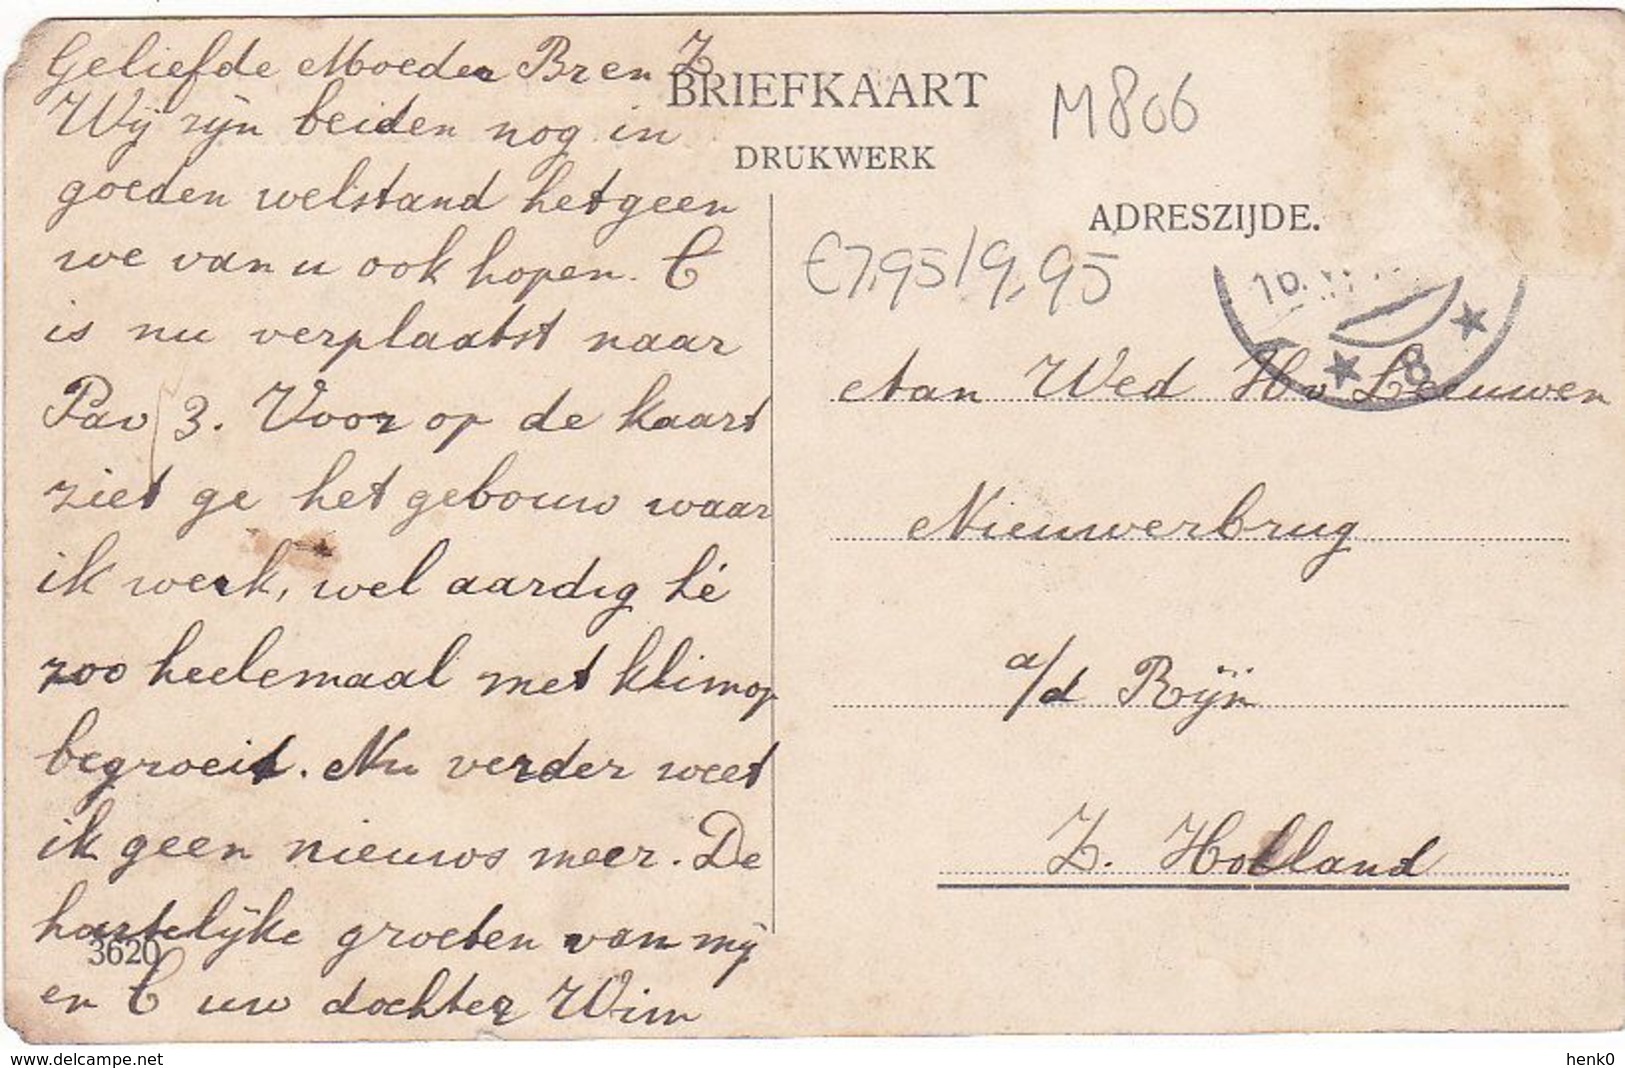 Geliefde Moeder Br en Z
Wij zijn beiden nog in
goeden welstand hetgeen
we van u ook hopen. C
is nu verplaatst naar
Pav 3. Voor op de kaart
ziet ge het gebouw waar
ik werk, wel aardig hé
zoo heelemaal met klimop
begroeit. Nu verder weet
ik geen nieuws meer. De
hartelijke groeten van mij
en C uw dochter Wim
3620
BRIEFKAART
DRUKWERK
M806
ADRESZIJDE.
€7,95/9,95
10.
8
Aan Wed H v Leeuwen
Nieuwerbrug
a/d Rijn
Z. Holland
www.delcampe.net
henk0